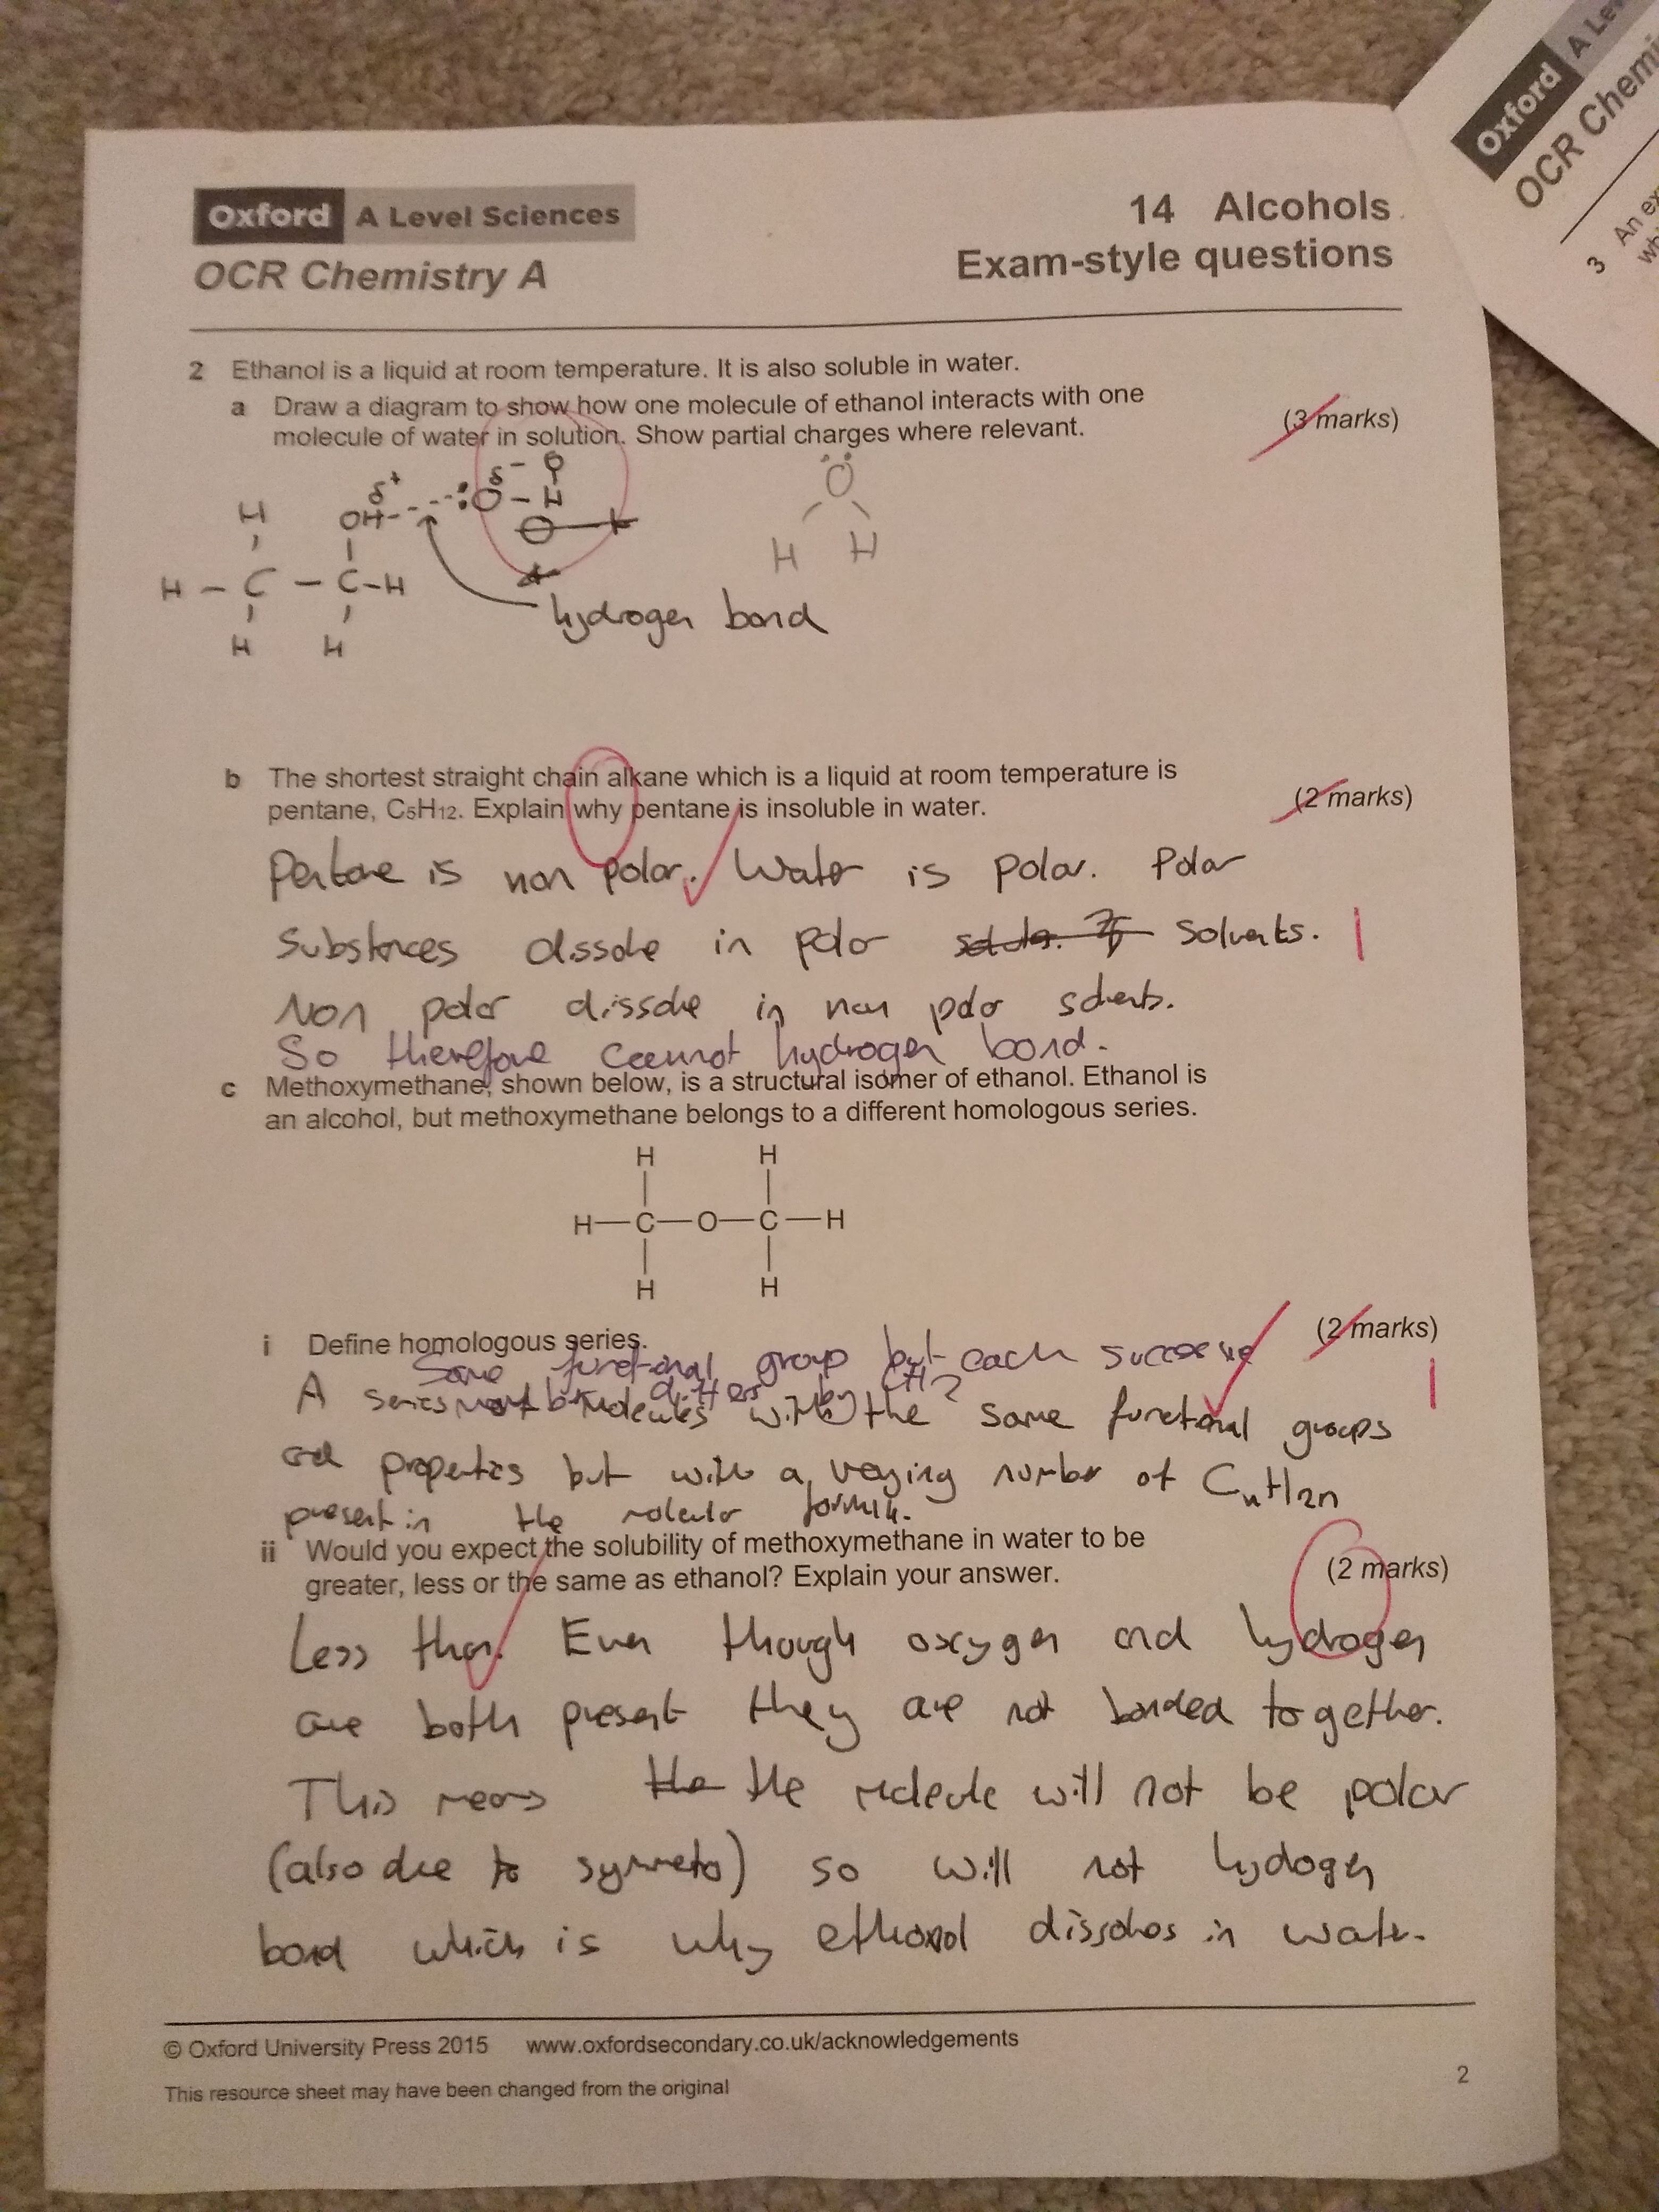 Oxford A Level Sciences
OCR Chemistry A
14 Alcohols
Exam-style questions
Oxford A Le
OCR Chemi
3 An ex
wh
2 Ethanol is a liquid at room temperature. It is also soluble in water.
a Draw a diagram to show how one molecule of ethanol interacts with one
molecule of water in solution. Show partial charges where relevant. (3 marks)
δ+ δ-
H OH :O - H
H - C - C - H
H H
O
H H
hydrogen bond
b The shortest straight chain alkane which is a liquid at room temperature is
pentane, C5H12. Explain why pentane is insoluble in water. (2 marks)
Pentane is non polar. Water is polar. Polar
substances dissolve in polar solvents. 1
Non polar dissolve in non polar solvents.
So therefore cannot hydrogen bond.
c Methoxymethane, shown below, is a structural isomer of ethanol. Ethanol is
an alcohol, but methoxymethane belongs to a different homologous series.
H H
H C O C H
H H
i Define homologous series. (2 marks)
Same functional group but each successive
differs by CH2 1
A series of molecules with the same functional groups
and properties but with a varying number of CnH2n
present in the molecular formula.
ii Would you expect the solubility of methoxymethane in water to be
greater, less or the same as ethanol? Explain your answer. (2 marks)
Less than. Even though oxygen and hydrogen
are both present they are not bonded together.
This means the the molecule will not be polar
(also due to symmetry) so will not hydogen
bond which is why ethanol dissolves in water.
© Oxford University Press 2015 www.oxfordsecondary.co.uk/acknowledgements
This resource sheet may have been changed from the original
2